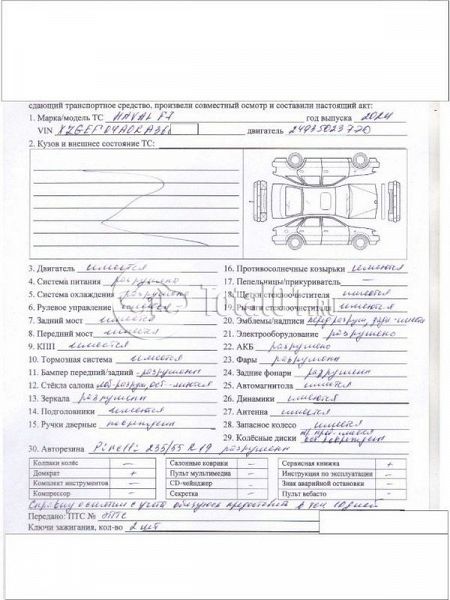 сдающий транспортное средство, произвели совместный осмотр и составили настоящий акт:
1. Марка/модель ТС HAVAL F7 год выпуска 2024
VIN двигатель
2. Кузов и внешнее состояние ТС:
3. Двигатель имеется
16. Противосолнечные козырьки имеются
4. Система питания разрушено
17. Пепельницы/прикуриватель —
5. Система охлаждения разрушено
18. Щетки стеклоочистителя имеются
6. Рулевое управление имеется
19. имеются
7. Задний мост имеется
20. Эмблемы/надписи перед разруш, зад имеется
8. Передний мост имеется
21. Электрооборудование разрушено
9. КПП имеется
22. АКБ разрушено
10. Тормозная система имеется
23. Фары разрушены
11. Бампер передний/задний разрушены
24. Задние фонари разрушены
12. Стёкла салона лоб разруш, ост - имеются
25. Автомагнитола имеется
13. Зеркала разрушены
26. Динамики имеются
14. Подголовники имеются
27. Антенна имеется
15. Ручки дверные повреждены
28. Запасное колесо имеется
29. Колёсные диски повреждены
30. Авторезина Pirelli 235/55 R19 разрушены
Колпаки колёс – Салонные коврики – Сервисная книжка +
Домкрат + Пульт мультимедиа – Инструкция по эксплуатации –
Комплект инструментов – CD-чейнджер – Знак аварийной остановки –
Компрессор – Секретка – Пульт вебасто –
Передано: ПТС № ЭПТС
Ключи зажигания, кол-во 2 шт